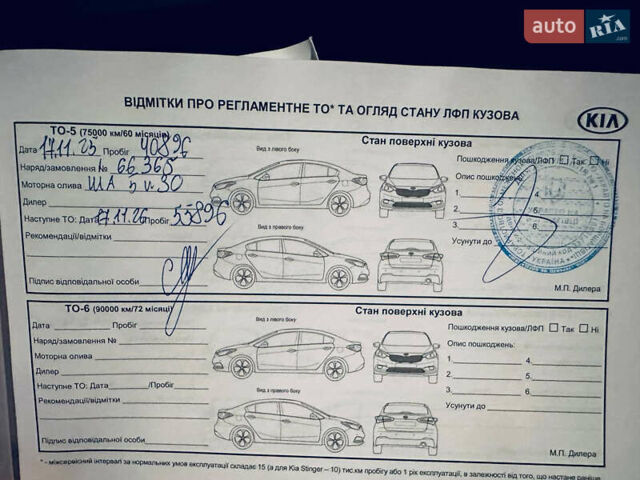 auto RIA.com
ВІДМІТКИ ПРО РЕГЛАМЕНТНЕ ТО* ТА ОГЛЯД СТАНУ ЛФП КУЗОВА
KIA
ТО-5 (75000 км/60 місяців)
Дата 17.11.25 Пробіг 40896
Наряд/замовлення № 66 365
Моторна олива 5 w 30
Дилер
Наступне ТО: Дата 17.11.26 Пробіг 55896
Рекомендації/відмітки
Підпис відповідальної особи
Вид з лівого боку
Вид з правого боку
Стан поверхні кузова
Пошкодження кузова/ЛФП Так Ні
Опис пошкоджень:
1. 4.
2. 5.
3. 6.
Усунути до
УКРАЇНА
М.П. Дилера
ТО-6 (90000 км/72 місяці)
Дата Пробіг
Наряд/замовлення №
Моторна олива
Дилер
Наступне ТО: Дата /Пробіг
Рекомендації/відмітки
Підпис відповідальної особи
Вид з лівого боку
Вид з правого боку
Стан поверхні кузова
Пошкодження кузова/ЛФП Так Ні
Опис пошкоджень:
1. 4.
2. 5.
3. 6.
Усунути до
М.П. Дилера
* - міжсервісний інтервал за нормальних умов експлуатації складає 15 (а для Kia Stinger – 10) тис.км пробігу або 1 рік експлуатації, в залежності від того, що настане раніше